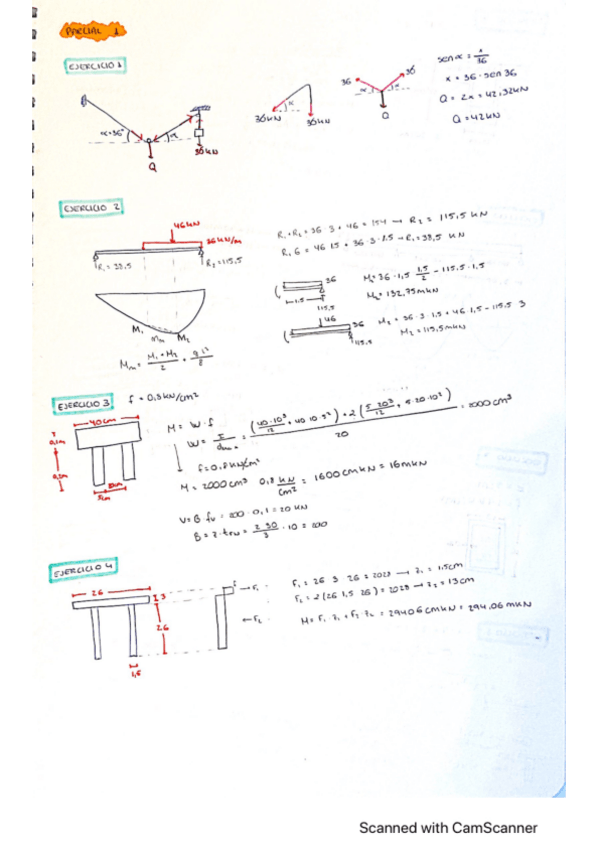 PARCIAL 1
EJERCICIO 1
α=36°
α
Q
36kN
36kN
α
36kN
36
36
α
α
Q
sen α = x/36
x = 36 · sen 36
Q = 2x = 42,32kN
Q = 42kN
EJERCICIO 2
46kN
36kN/m
R₁ = 38,5
R₂ = 115,5
M₁
Mm
M₂
Mm = (M₁ + M₂)/2 + q l²/8
R₁ + R₂ = 36 · 3 + 46 = 154 → R₂ = 115,5 kN
R₁ 6 = 46 1,5 + 36 · 3 · 1,5 → R₁ = 38,5 kN
36
1,5
115,5
46
36
115,5
= 36 · 1,5 1,5/2 - 115,5 · 1,5
= 132,75mkN
= 36 · 3 · 1,5 + 46 1,5 - 115,5 3
M₂ = 115,5mkN
EJERCICIO 3
f = 0,8kN/cm²
40cm
5cm
M = W · f
W = = 2000 cm³
20
f = 0,8 kN/cm²
M = 2000cm³ 0,8 kN/cm² = 1600cmkN = 16mkN
V = B · fv = 200 · 0,1 = 20 kN
= 200
EJERCICIO 4
26
3
26
1,5
F₁
F₂
F₁ = 26 3 26 = 2028 → z₁ = 1,5cm
F₂ = 2(26 1,5 26) = 2028 → z₂ = 13cm
M = F₁ z₁ + F₂ z₂ = 29406cmkN = 294,06mkN
Scanned with CamScanner